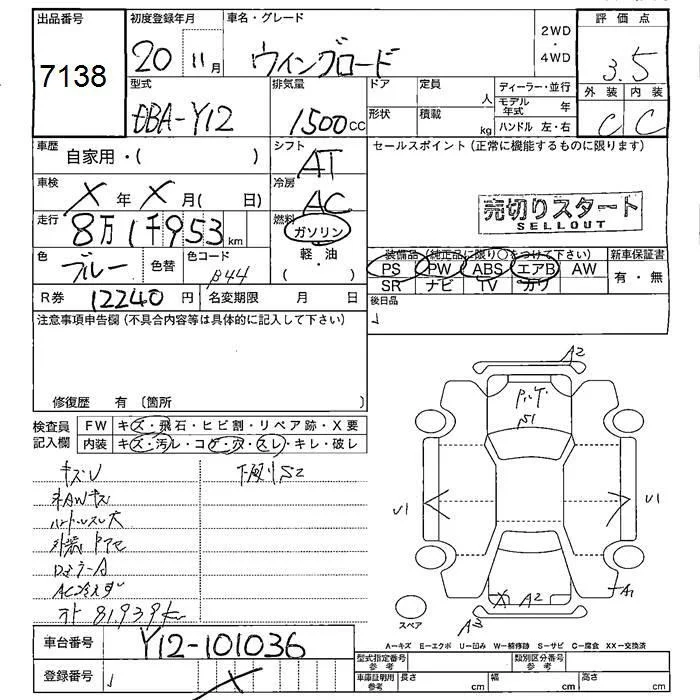 出品番号
7138
初度登録年月
20 11月
車名・グレード
ウイングロード
2WD
・
4WD
評価点
3.5
外装 内装
C C
型式
DBA-Y12
排気量
1500cc
ドア
定員
人
形状
積載
kg
ディーラー・並行
モデル年式 年
ハンドル 左・右
車歴
自家用・( )
シフト
AT
車検
X 年 X 月( 日)
冷房
AC
走行
8万1千953km
燃料
ガソリン
軽・油
( )
色
ブルー
色替
色コード
B44
R券
12240円
名変期限 月 日
セールスポイント(正常に機能するものに限ります)
売切りスタート
SELLOUT
装備品(純正品に限り○をつけて下さい)
PS PW ABS エアB AW
SR ナビ TV カワ
新車保証書
有・無
後日品
注意事項申告欄(不具合内容等は具体的に記入して下さい)
修復歴 有(箇所 )
検査員記入欄
FW キズ・飛石・ヒビ割・リペア跡・X要
内装 キズ・汚レ・コゲ・穴・スレ・キレ・破レ
キズU
下廻りS2
AWキズ
ハンドルスレ大
外装
81,939km
A2
P.T.
S1
U1
U1
A2
A1
スペア
A=キズ E=エクボ U=凹み W=補修跡 S=サビ C=腐食 XX=交換済
車台番号
Y12-101036
登録番号
型式指定番号
参考
類別区分番号
参考
車庫証明用
参考
長さ cm
幅 cm
高さ cm